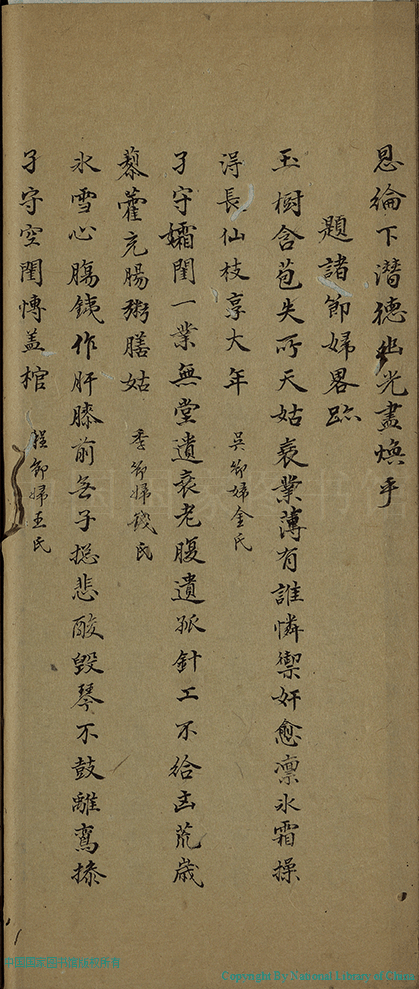 恩綸下潛德幽光盡煥乎
題諸節婦畧跡
玉樹含苞失所天姑衰業薄有誰憐禦奸愈凛冰霜操
得長仙枝享大年 吳節婦金氏
孑守孀閨一業無堂遺衰老腹遺孤針工不給凶荒歲
藜藿充腸粥膳姑 季節婦錢氏
冰雪心腸鐵作肝膝前無子揔悲酸毀琴不鼓離鸞操
孑守空閨慱盖棺 程節婦王氏
中国国家图书馆版权所有
Copyright By National Library of China